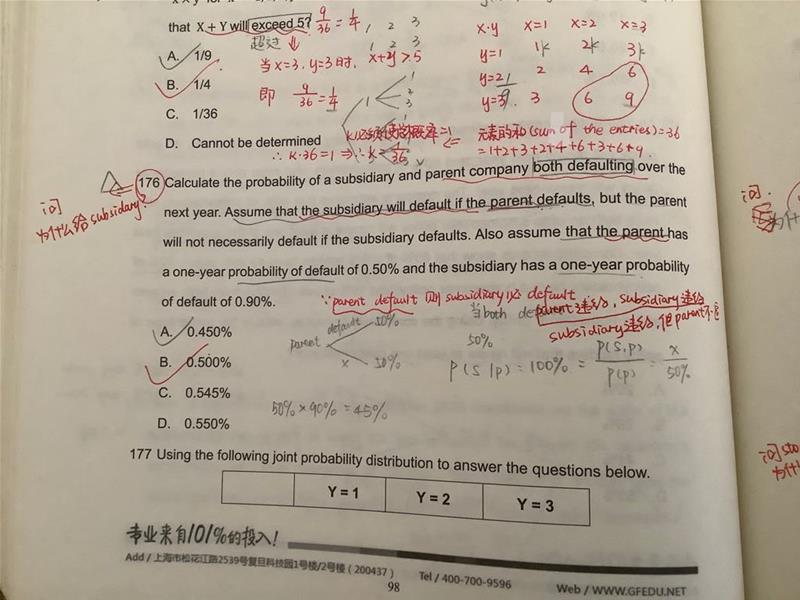 that X + Y will exceed 5? 9/36 = 1/4
超过
1 2 3
1 2 3
x·y x=1 x=2 x=3
A. 1/9
当x=3, y=3时, x+y>5
y=1 1k 2k 3k
B. 1/4
即 9/36 = 1/4
y=2 2 4 6
C. 1/36
y=3 3 6 9
D. Cannot be determined
元素的和(sum of the entries)=36
=1+2+3+2+4+6+3+6+9
∴ k·36=1 ⇒ ∴ k= 1/36
176 Calculate the probability of a subsidiary and parent company both defaulting over the
next year. Assume that the subsidiary will default if the parent defaults, but the parent
will not necessarily default if the subsidiary defaults. Also assume that the parent has
a one-year probability of default of 0.50% and the subsidiary has a one-year probability
of default of 0.90%.
问
为什么给subsidary?
∵parent default 则 subsidiary 必 default
A. 0.450%
parent default 50%
x 50%
当both
parent违约, subsidiary违约
subsidiary违约, 但parent不
B. 0.500%
50%
P(S|P) = 100% = P(S,P)/P(P) = x/50%
C. 0.545%
50% × 90% = 45%
D. 0.550%
177 Using the following joint probability distribution to answer the questions below.
Y = 1 Y = 2 Y = 3
专业来自101%的投入!
Add / 上海市松花江路2539号复旦科技园1号楼/2号楼 (200437) Tel / 400-700-9596 Web / WWW.GFEDU.NET
98
问
问